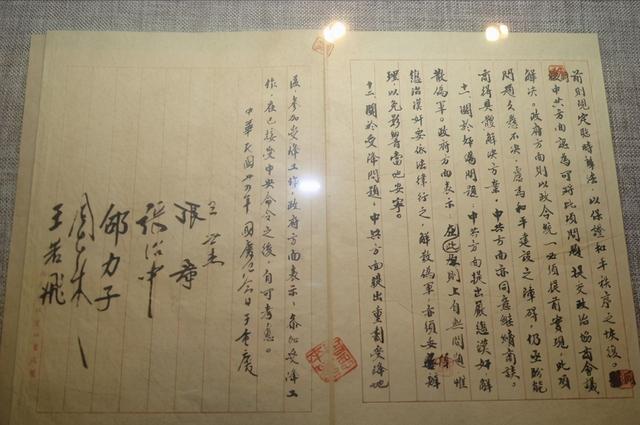 前則規定臨時辦法,以保證和平秩序之恢復。
中共方面認為可將此項問題提交政治協商會議
解決。政府方面則以政令統一必須提前實現,此項
問題久懸不決,慮為和平建設之障碍,仍亟盼能
商得具體解決方案。中共方面亦同意繼續商談。
十一、關於奸偽問題,中共方面提出嚴懲漢奸,解
散偽軍。政府方面表示:此在原則上自無問題,惟
懲治漢奸要依法律行之,解散偽軍亦須妥慎辦
理,以免影響當地安寧。
十二、關於受降問題,中共方面提出重劃受降地
區,參加受降工作。政府方面表示,參加受降工
作,在已接受中央命令之後,自可考慮。
中華民國卅四年國慶紀念日于重慶
王世杰
張羣
張治中
邵力子
周恩來
王若飛